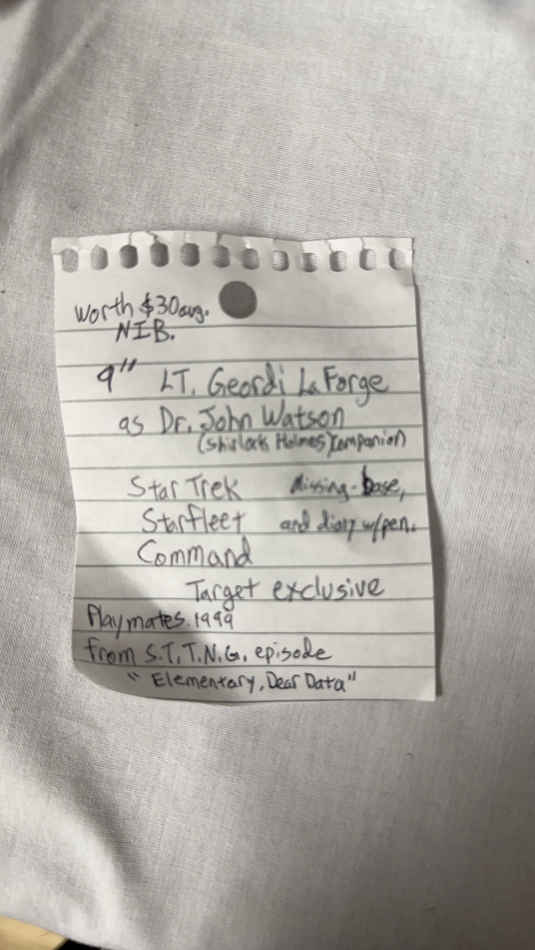 Worth $30 avg.
N.I.B.
9" LT. Geordi La Forge
as Dr. John Watson
(Sherlock Holmes) Companion
Star Trek missing-base,
Starfleet and diary w/pen.
Command
Target exclusive
Playmates. 1999
from S.T.T.N.G. episode
"Elementary, Dear Data"